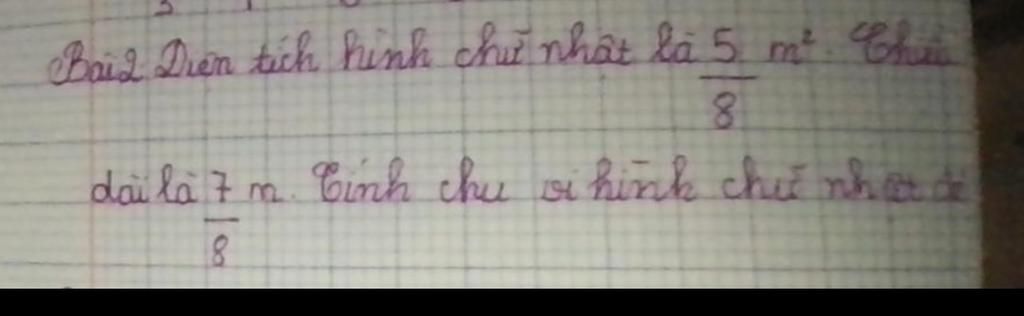 Bài 2 Diện tích hình chữ nhật là 5/8 m². Chiều
dài là 7/8 m. Tính chu vi hình chữ nhật đó